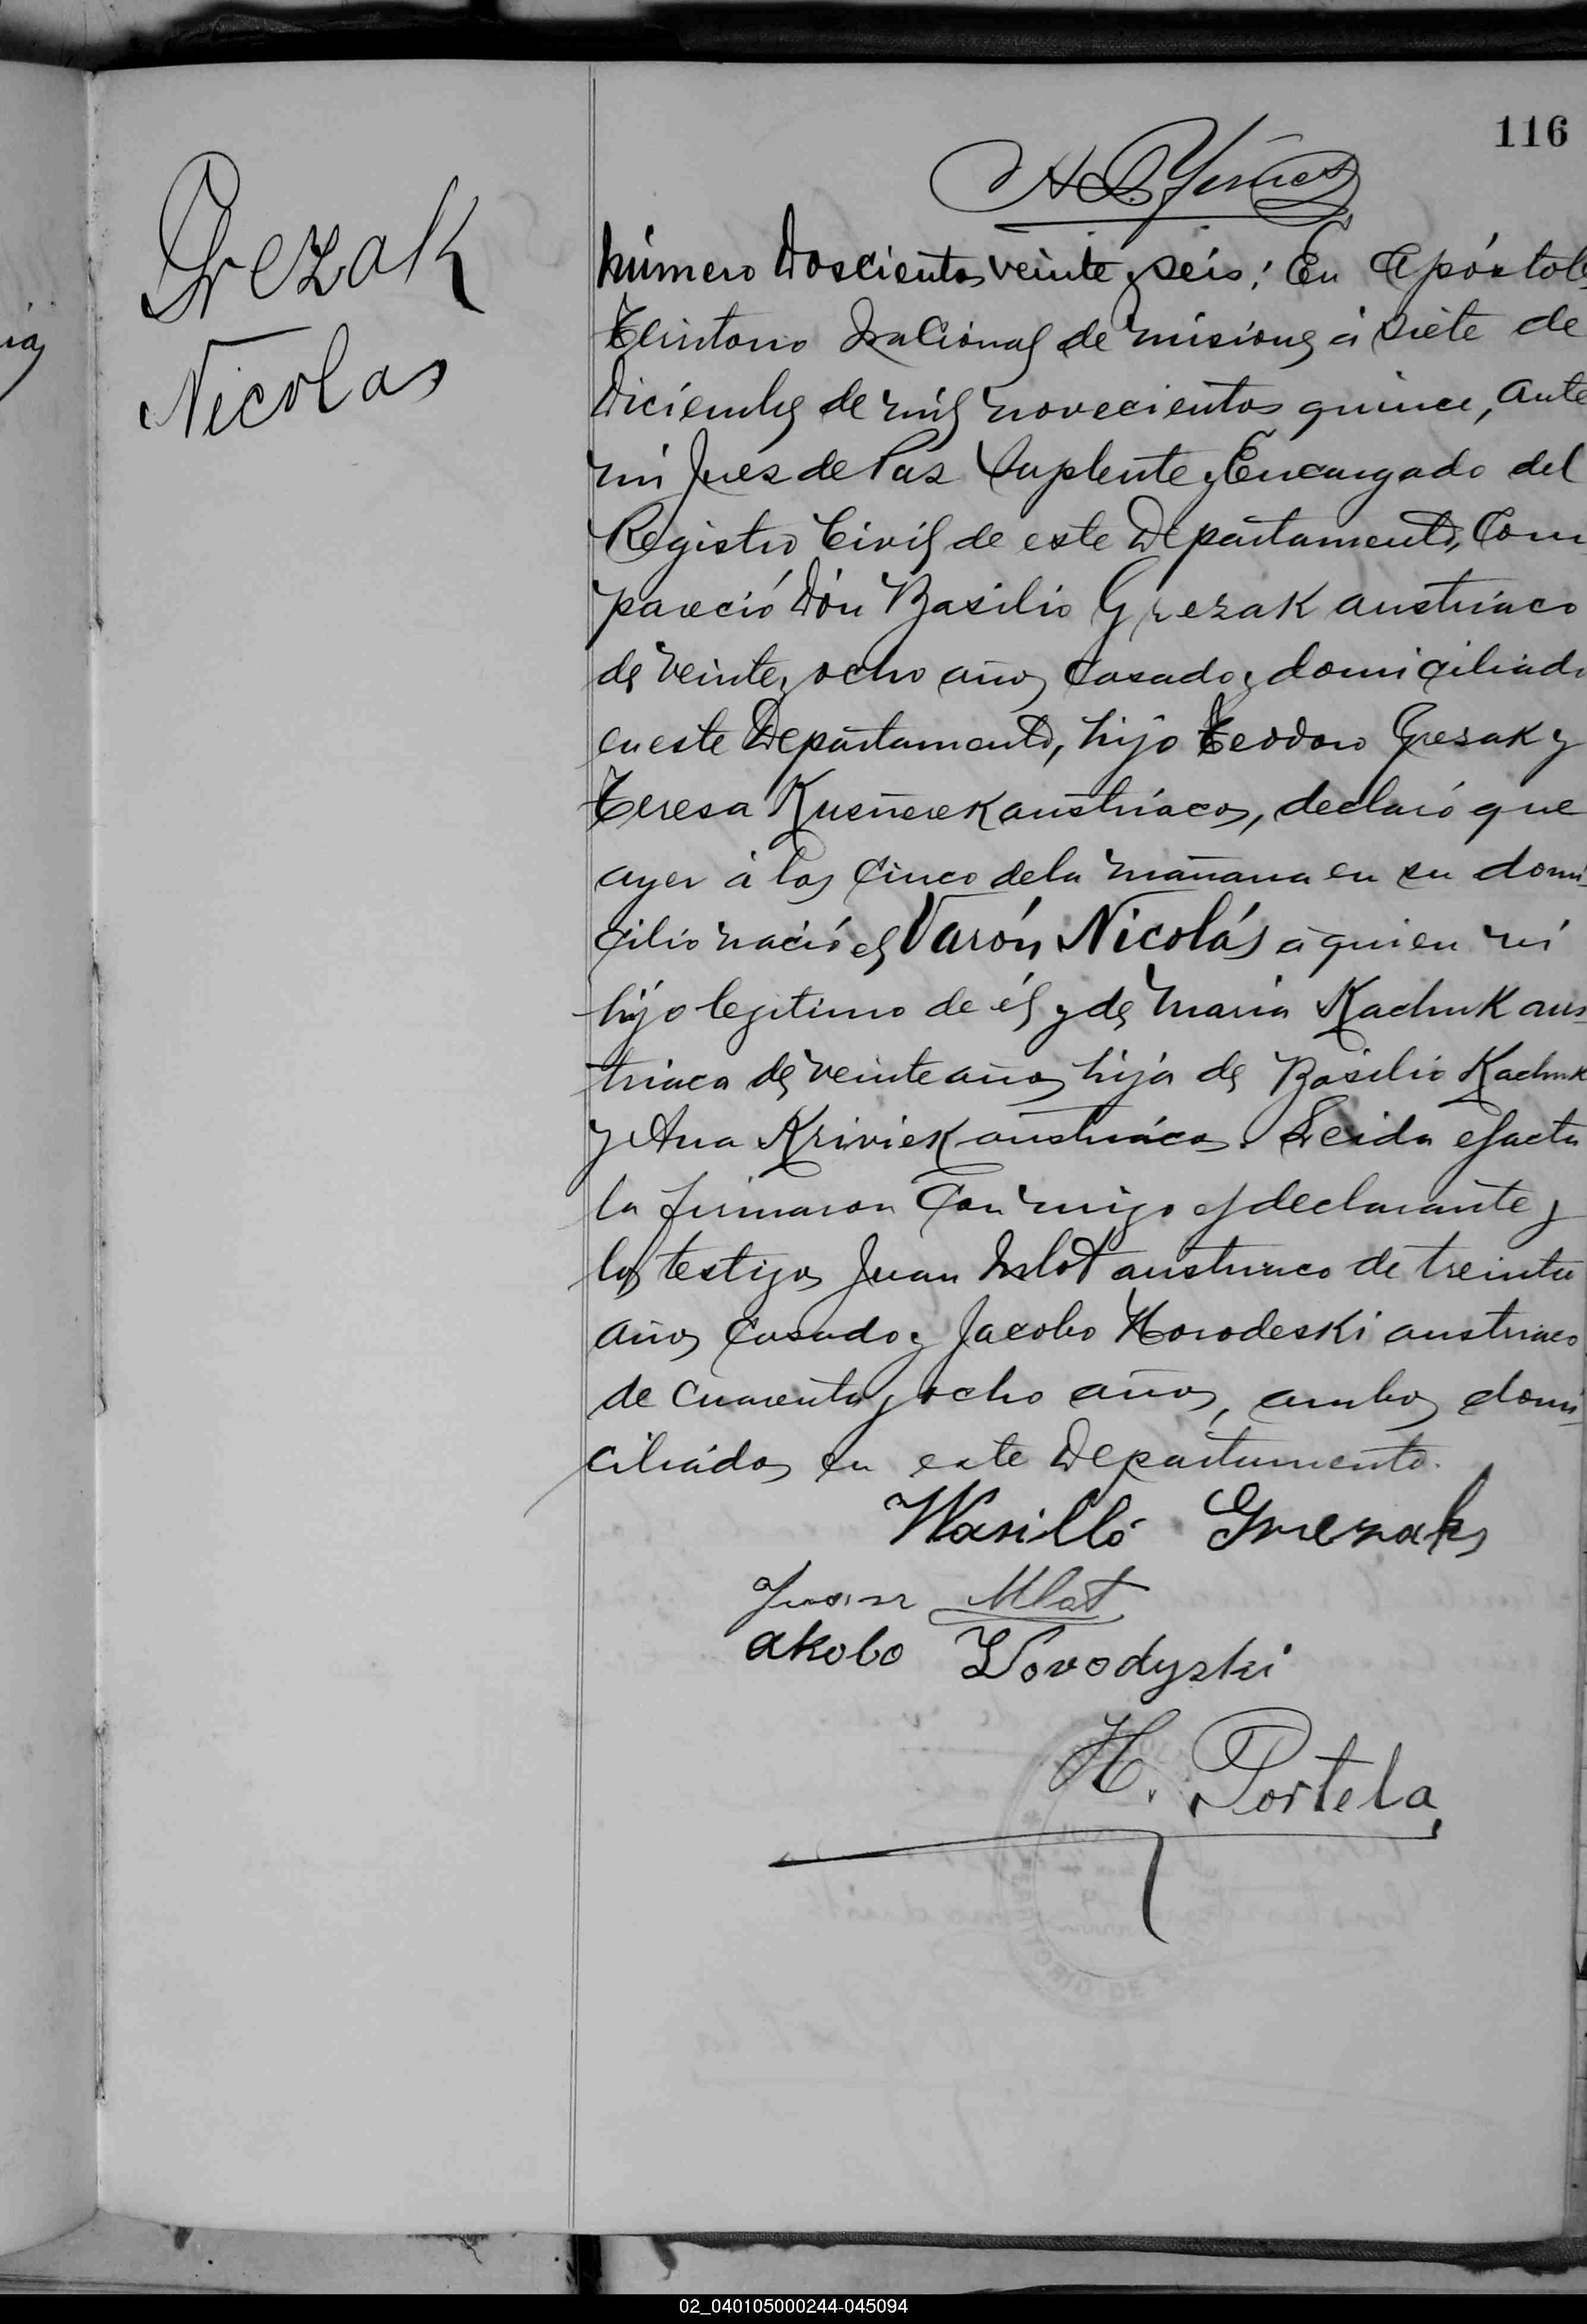 116
Grezak
Nicolas
Número Doscientos veinte y seis: En Apóstoles
Territorio Nacional de Misiones á siete de
Diciembre de mil novecientos quince, ante
mi Juez de Paz Suplente y Encargado del
Registro Civil de este Departamento, Com
pareció Dón Basilio Grezak austriaco
de veinte y ocho años casado y domiciliado
en este Departamento, hijo Teodoro Grezak y
Teresa Kusñerek austriacos, declaró que
ayer á las cinco de la mañana en su domi
cilio nació el Varón Nicolás a quien ví
hijo legitimo de él y de Maria Kachuk aus
triaca de veinte años hija de Basilio Kachuk
y Ana Kriviek austriacos. Leida el acta
la firmaron conmigo el declarante y
los testigos Juan Mlot austriaco de treinta
años casado y Jacobo Horodeski austriaco
de cuarenta y ocho años, ambos domi
ciliados en este Departamento.
Wasilló Grezak
Juan Mlat
akobo Horodyski
H. Portela
02_040105000244-045094